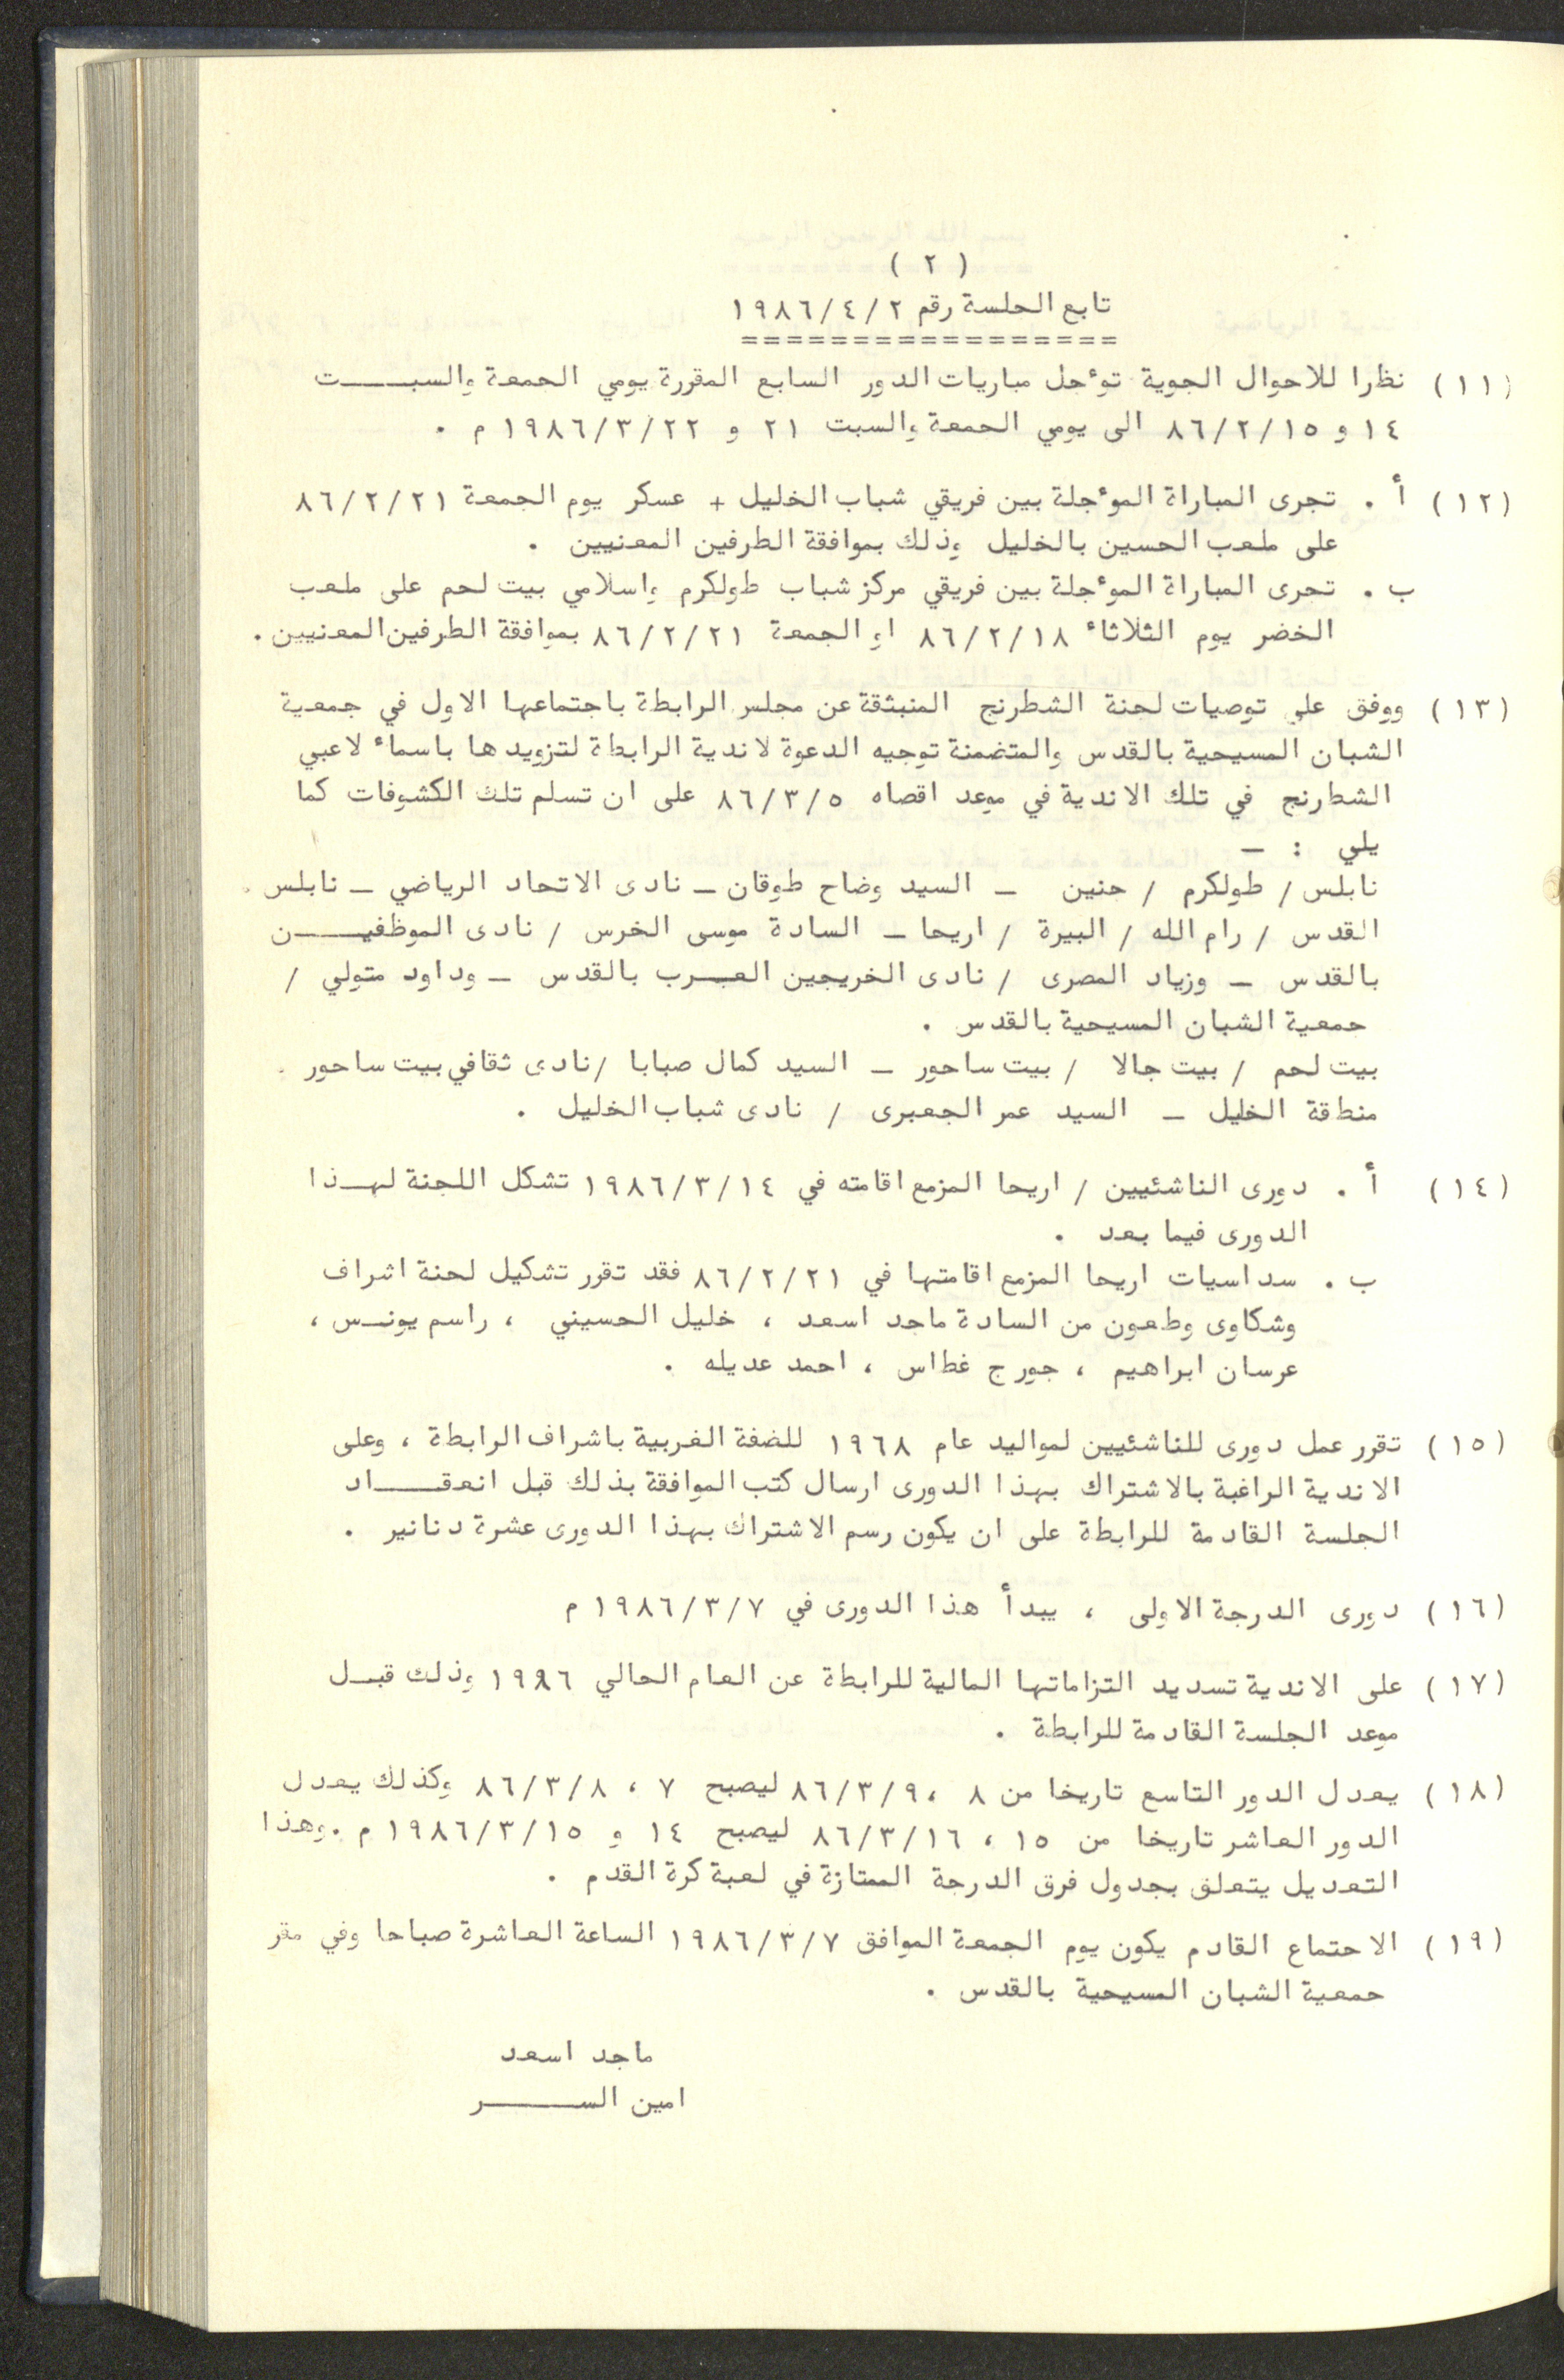 ( ٢ )
تابع الجلسة رقم ١٩٨٦/٤/٢
=================
(١١) نظرا للاحوال الجوية توٴجل مباريات الدور السابع المقررة يومي الجمعة والسبـــــت
١٤ و ٨٦/٢/١٥ الى يومي الجمعة والسبت ٢١ و ١٩٨٦/٣/٢٢ م .
(١٢) أ . تجرى المباراة الموٴجلة بين فريقي شباب الخليل + عسكر يوم الجمعة ٨٦/٢/٢١
على ملعب الحسين بالخليل وذلك بموافقة الطرفين المعنيين .
ب . تجرى المباراة الموٴجلة بين فريقي مركز شباب طولكرم واسلامي بيت لحم على ملعب
الخضر يوم الثلاثاء ٨٦/٢/١٨ او الجمعة ٨٦/٢/٢١ بموافقة الطرفين المعنيين .
(١٣) ووفق على توصيات لجنة الشطرنج المنبثقة عن مجلس الرابطة باجتماعها الاول في جمعية
الشبان المسيحية بالقدس والمتضمنة توجيه الدعوة لاندية الرابطة لتزويدها باسماء لاعبي
الشطارنج في تلك الاندية في موعد اقصاه ٨٦/٣/٥ على ان تسلم تلك الكشوفات كما
يلي : -
نابلس / طولكرم / جنين - السيد وضاح طوقان - نادى الاتحاد الرياضي - نابلس .
القدس / رام الله / البيرة / اريحا - السادة موسى الخرس / نادى الموظفيـــن
بالقدس - وزياد المصرى / نادى الخريجين العــرب بالقدس - وداود متولي /
جمعية الشبان المسيحية بالقدس .
بيت لحم / بيت جالا / بيت ساحور - السيد كمال صبابا / نادى ثقافي بيت ساحور .
منطقة الخليل - السيد عمر الجعبرى / نادى شباب الخليل .
(١٤) أ . دورى الناشئيين / اريحا المزمع اقامته في ١٩٨٦/٣/١٤ تشكل اللجنة لهـذا
الدورى فيما بعد .
ب . سداسيات اريحا المزمع اقامتها في ٨٦/٢/٢١ فقد تقرر تشكيل لجنة اشراف
وشكاوى وطعون من السادة ماجد اسعد ، خليل الحسيني ، راسم يونـس ،
عرسان ابراهيم ، جورج غطاس ، احمد عديله .
(١٥) تقرر عمل دورى للناشئيين لمواليد عام ١٩٦٨ للضفة الغربية باشراف الرابطة ، وعلى
الاندية الراغبة بالاشتراك بهذا الدورى ارسال كتب الموافقة بذلك قبل انعقـــاد
الجلسة القادمة للرابطة على ان يكون رسم الاشتراك بهذا الدورى عشرة دنانير .
(١٦) دورى الدرجة الاولى ، يبدأ هذا الدورى في ١٩٨٦/٣/٧ م
(١٧) على الاندية تسديد التزاماتها المالية للرابطة عن العام الحالي ١٩٨٦ وذلك قبـل
موعد الجلسة القادمة للرابطة .
(١٨) يعدل الدور التاسع تاريخا من ٨ ، ٨٦/٣/٩ ليصبح ٧ ، ٨٦/٣/٨ وكذلك يعدل
الدور العاشر تاريخا من ١٥ ، ٨٦/٣/١٦ ليصبح ١٤ و ١٩٨٦/٣/١٥ م . وهذا
التعديل يتعلق بجدول فرق الدرجة الممتازة في لعبة كرة القدم .
(١٩) الاجتماع القادم يكون يوم الجمعة الموافق ١٩٨٦/٣/٧ الساعة العاشرة صباحا وفي مقر
جمعية الشبان المسيحية بالقدس .
ماجد اسعد
امين الســــــر